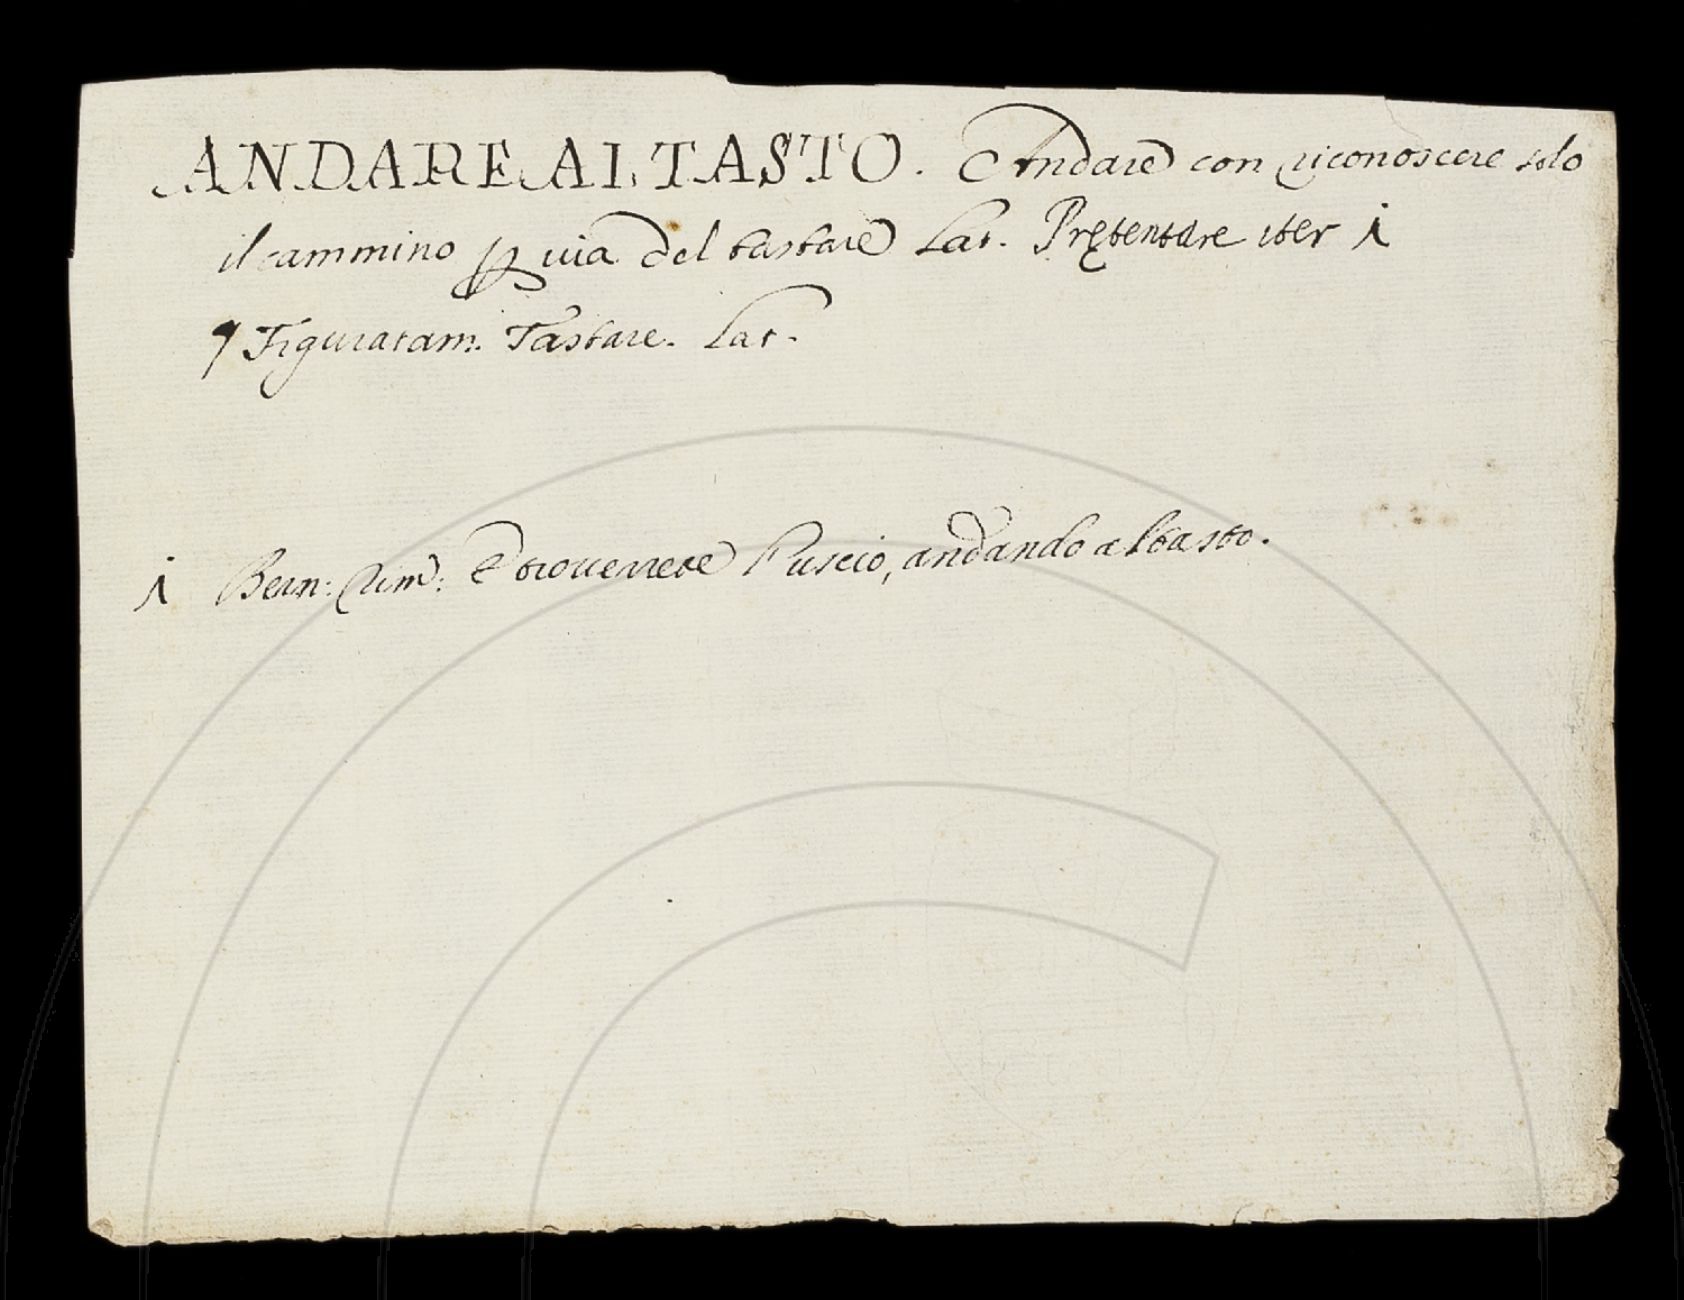 ANDARE AL TASTO. Andare con riconoscere solo
il cammino ꝑ via del tastare Lat. Prętentare iter 1
¶ Figuratam. Tastare. Lat.
1 Bern: Rim: E troverrete l'uscio, andando al tasto.